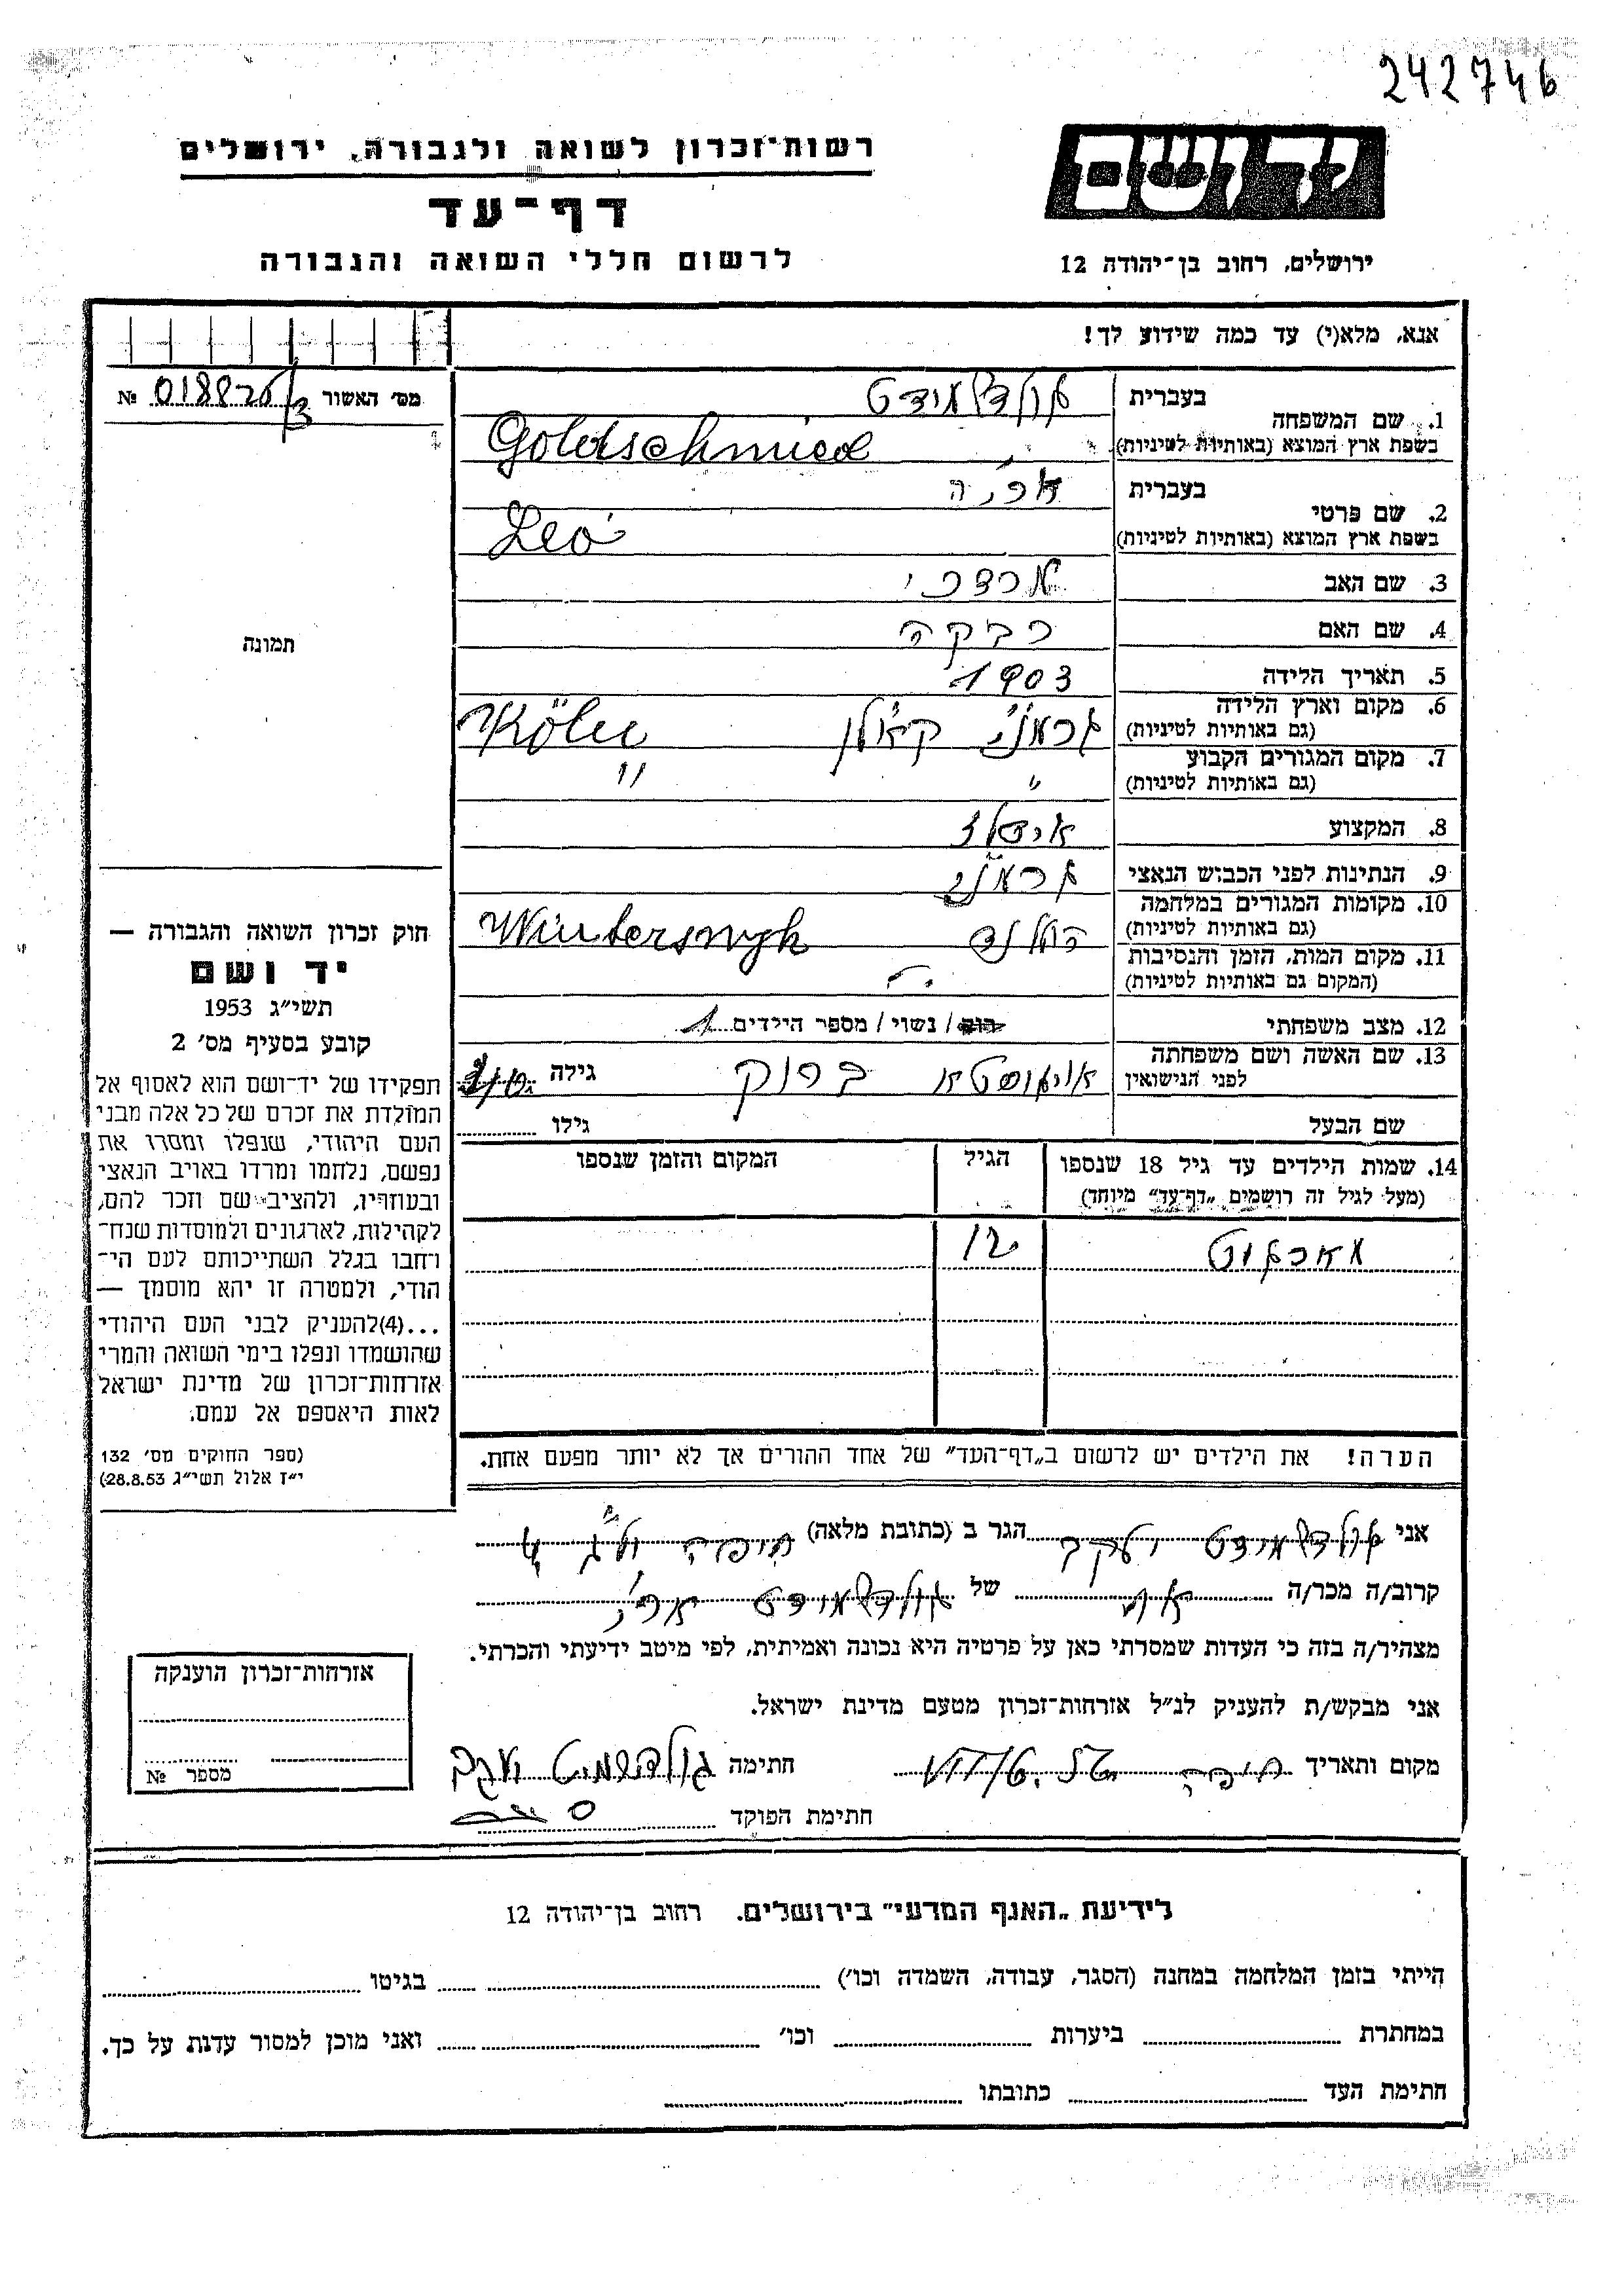 242746
רשות־זכרון לשואה ולגבורה, ירושלים
יד ושם
דף־עד
לרשום חללי השואה והגבורה
ירושלים, רחוב בן־יהודה 12
אנא, מלא(י) עד כמה שידוע לך!
מס׳ האשור № 018826/3
1. שם המשפחה
בעברית גולדשמידט
בשפת ארץ המוצא (באותיות לטיניות) Goldschmied
2. שם פרטי
בעברית אריה
בשפת ארץ המוצא (באותיות לטיניות) Leo
3. שם האב מרדכי
4. שם האם רבקה
5. תאריך הלידה 1903
6. מקום וארץ הלידה גרמני׳ קאולן Köln
(גם באותיות לטיניות)
7. מקום המגורים הקבוע " "
(גם באותיות לטיניות)
8. המקצוע
9. הנתינות לפני הכבוש הנאצי גרמני׳
10. מקומות המגורים במלחמה הולנד Winterswyk
(גם באותיות לטיניות)
11. מקום המות, הזמן והנסיבות
(המקום גם באותיות לטיניות)
12. מצב משפחתי רוק / נשוי / מספר הילדים 1
13. שם האשה ושם משפחתה
לפני הנישואין אויגוסטא ברוק גילה
שם הבעל גילו
14. שמות הילדים עד גיל 18 שנספו
(מעל לגיל זה רושמים „דף־עד״ מיוחד)
הגיל
המקום והזמן שנספו
מארגוט 12
הערה! את הילדים יש לרשום ב„דף־העד״ של אחד ההורים אך לא יותר מפעם אחת.
תמונה
חוק זכרון השואה והגבורה —
יד ושם
תשי״ג 1953
קובע בסעיף מס׳ 2
תפקידו של יד־ושם הוא לאסוף אל
המולדת את זכרם של כל אלה מבני
העם היהודי, שנפלו ומסרו את
נפשם, נלחמו ומרדו באויב הנאצי
ובעוזריו, ולהציב שם וזכר להם,
לקהילות, לארגונים ולמוסדות שנח־
רחבו בגלל השתייכותם לעם הי־
הודי, ולמטרה זו יהא מוסמך —
...(4)להעניק לבני העם היהודי
שהושמדו ונפלו בימי השואה והמרי
אזרחות־זכרון של מדינת ישראל
לאות היאספם אל עמם.
(ספר החוקים מס׳ 132
י״ז אלול תשי״ג 28.8.53)
אני גולדשמידט יעקב הגר ב (כתובת מלאה) חיפה
קרוב/ה מכר/ה אח של גולדשמידט ארי׳
מצהיר/ה בזה כי העדות שמסרתי כאן על פרטיה היא נכונה ואמיתית, לפי מיטב ידיעתי והכרתי.
אני מבקש/ת להעניק לנ״ל אזרחות־זכרון מטעם מדינת ישראל.
מקום ותאריך חיפה חתימה גולדשמיט יעקב
חתימת הפוקד
אזרחות־זכרון הוענקה
מספר №
לידיעת „האגף המדעי״ בירושלים. רחוב בן־יהודה 12
הייתי בזמן המלחמה במחנה (הסגר, עבודה, השמדה וכו׳) בגיטו
במחתרת ביערות וכו׳ ואני מוכן למסור עדות על כך.
חתימת העד כתובתו